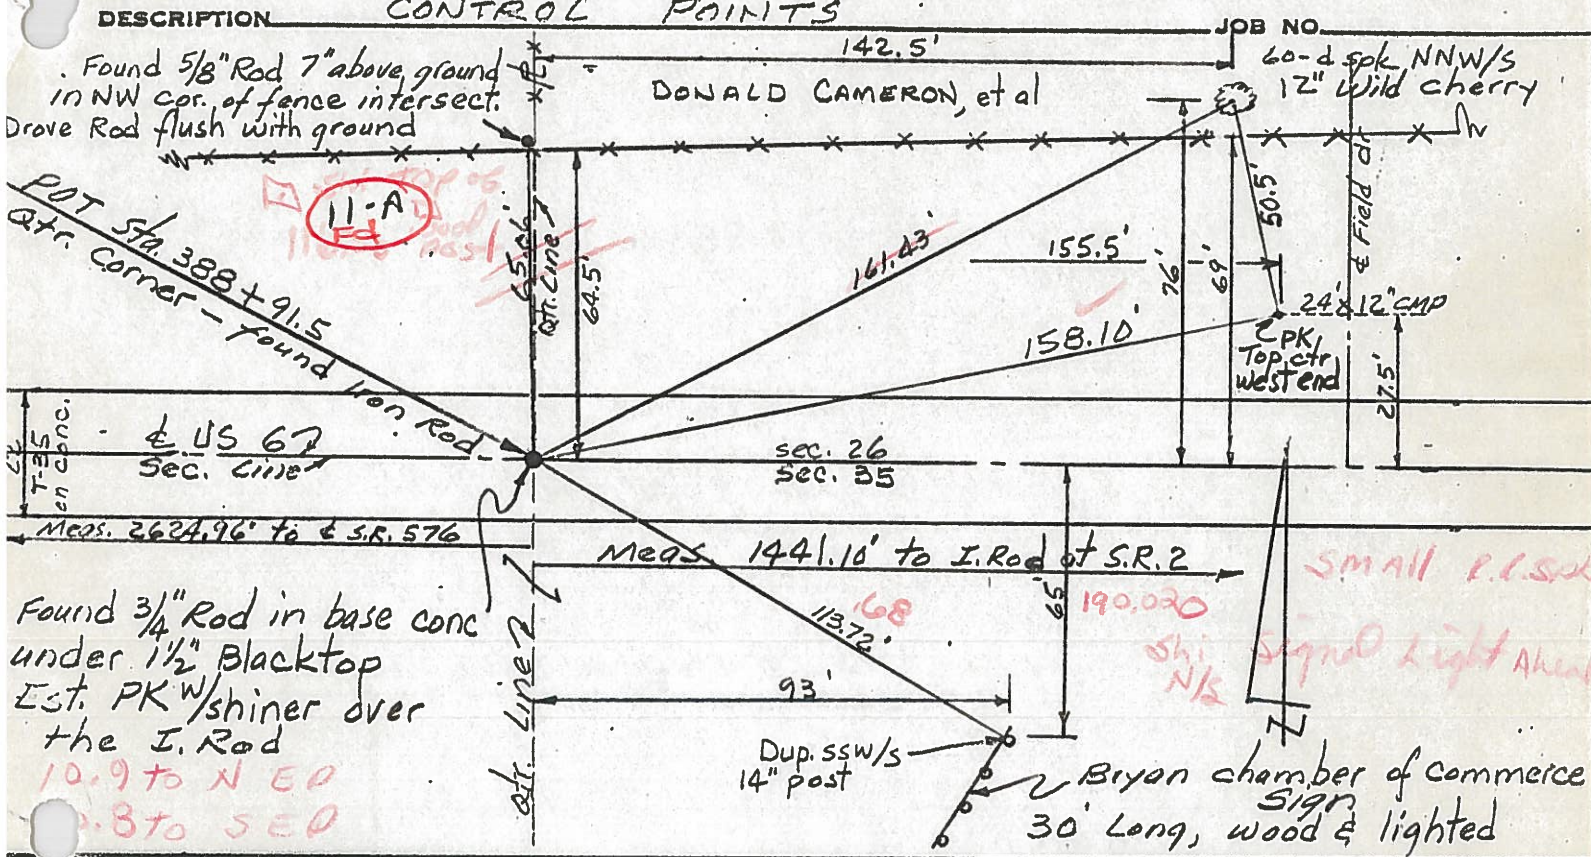 DESCRIPTION CONTROL POINTS
JOB NO.
Found 5/8" Rod 7" above ground
in NW cor. of fence intersect.
Drove Rod flush with ground
142.5'
DONALD CAMERON, et al
60-d spk NNW/S
12" Wild cherry
11-A
Fd
POT Sta. 388+91.5
Qtr. Corner - found Iron Rod
Qtr. Line
64.5'
161.43'
155.5'
76'
69'
50.5'
℄ Field dr
158.10'
24'x12" CMP
PK
Top ctr
West end
27.5'
T-35
on conc.
℄ US 6
Sec. Line
sec. 26
Sec. 35
Meas. 2624.96' to ℄ S.R. 576
Meas 1441.10' to I. Rod at S.R. 2
SMALL
Found 3/4" Rod in base conc
under 1 1/2" Blacktop
Est. PK W/shiner over
the I. Rod
10.9 to N EO
.8 to S EO
Qtr. Line
113.72'
.68
65'
190.020
Shi
N/S
Signal Light Ahead
93'
Dup. SSW/S
14" post
Bryan chamber of Commerce
Sign
30' Long, wood & lighted